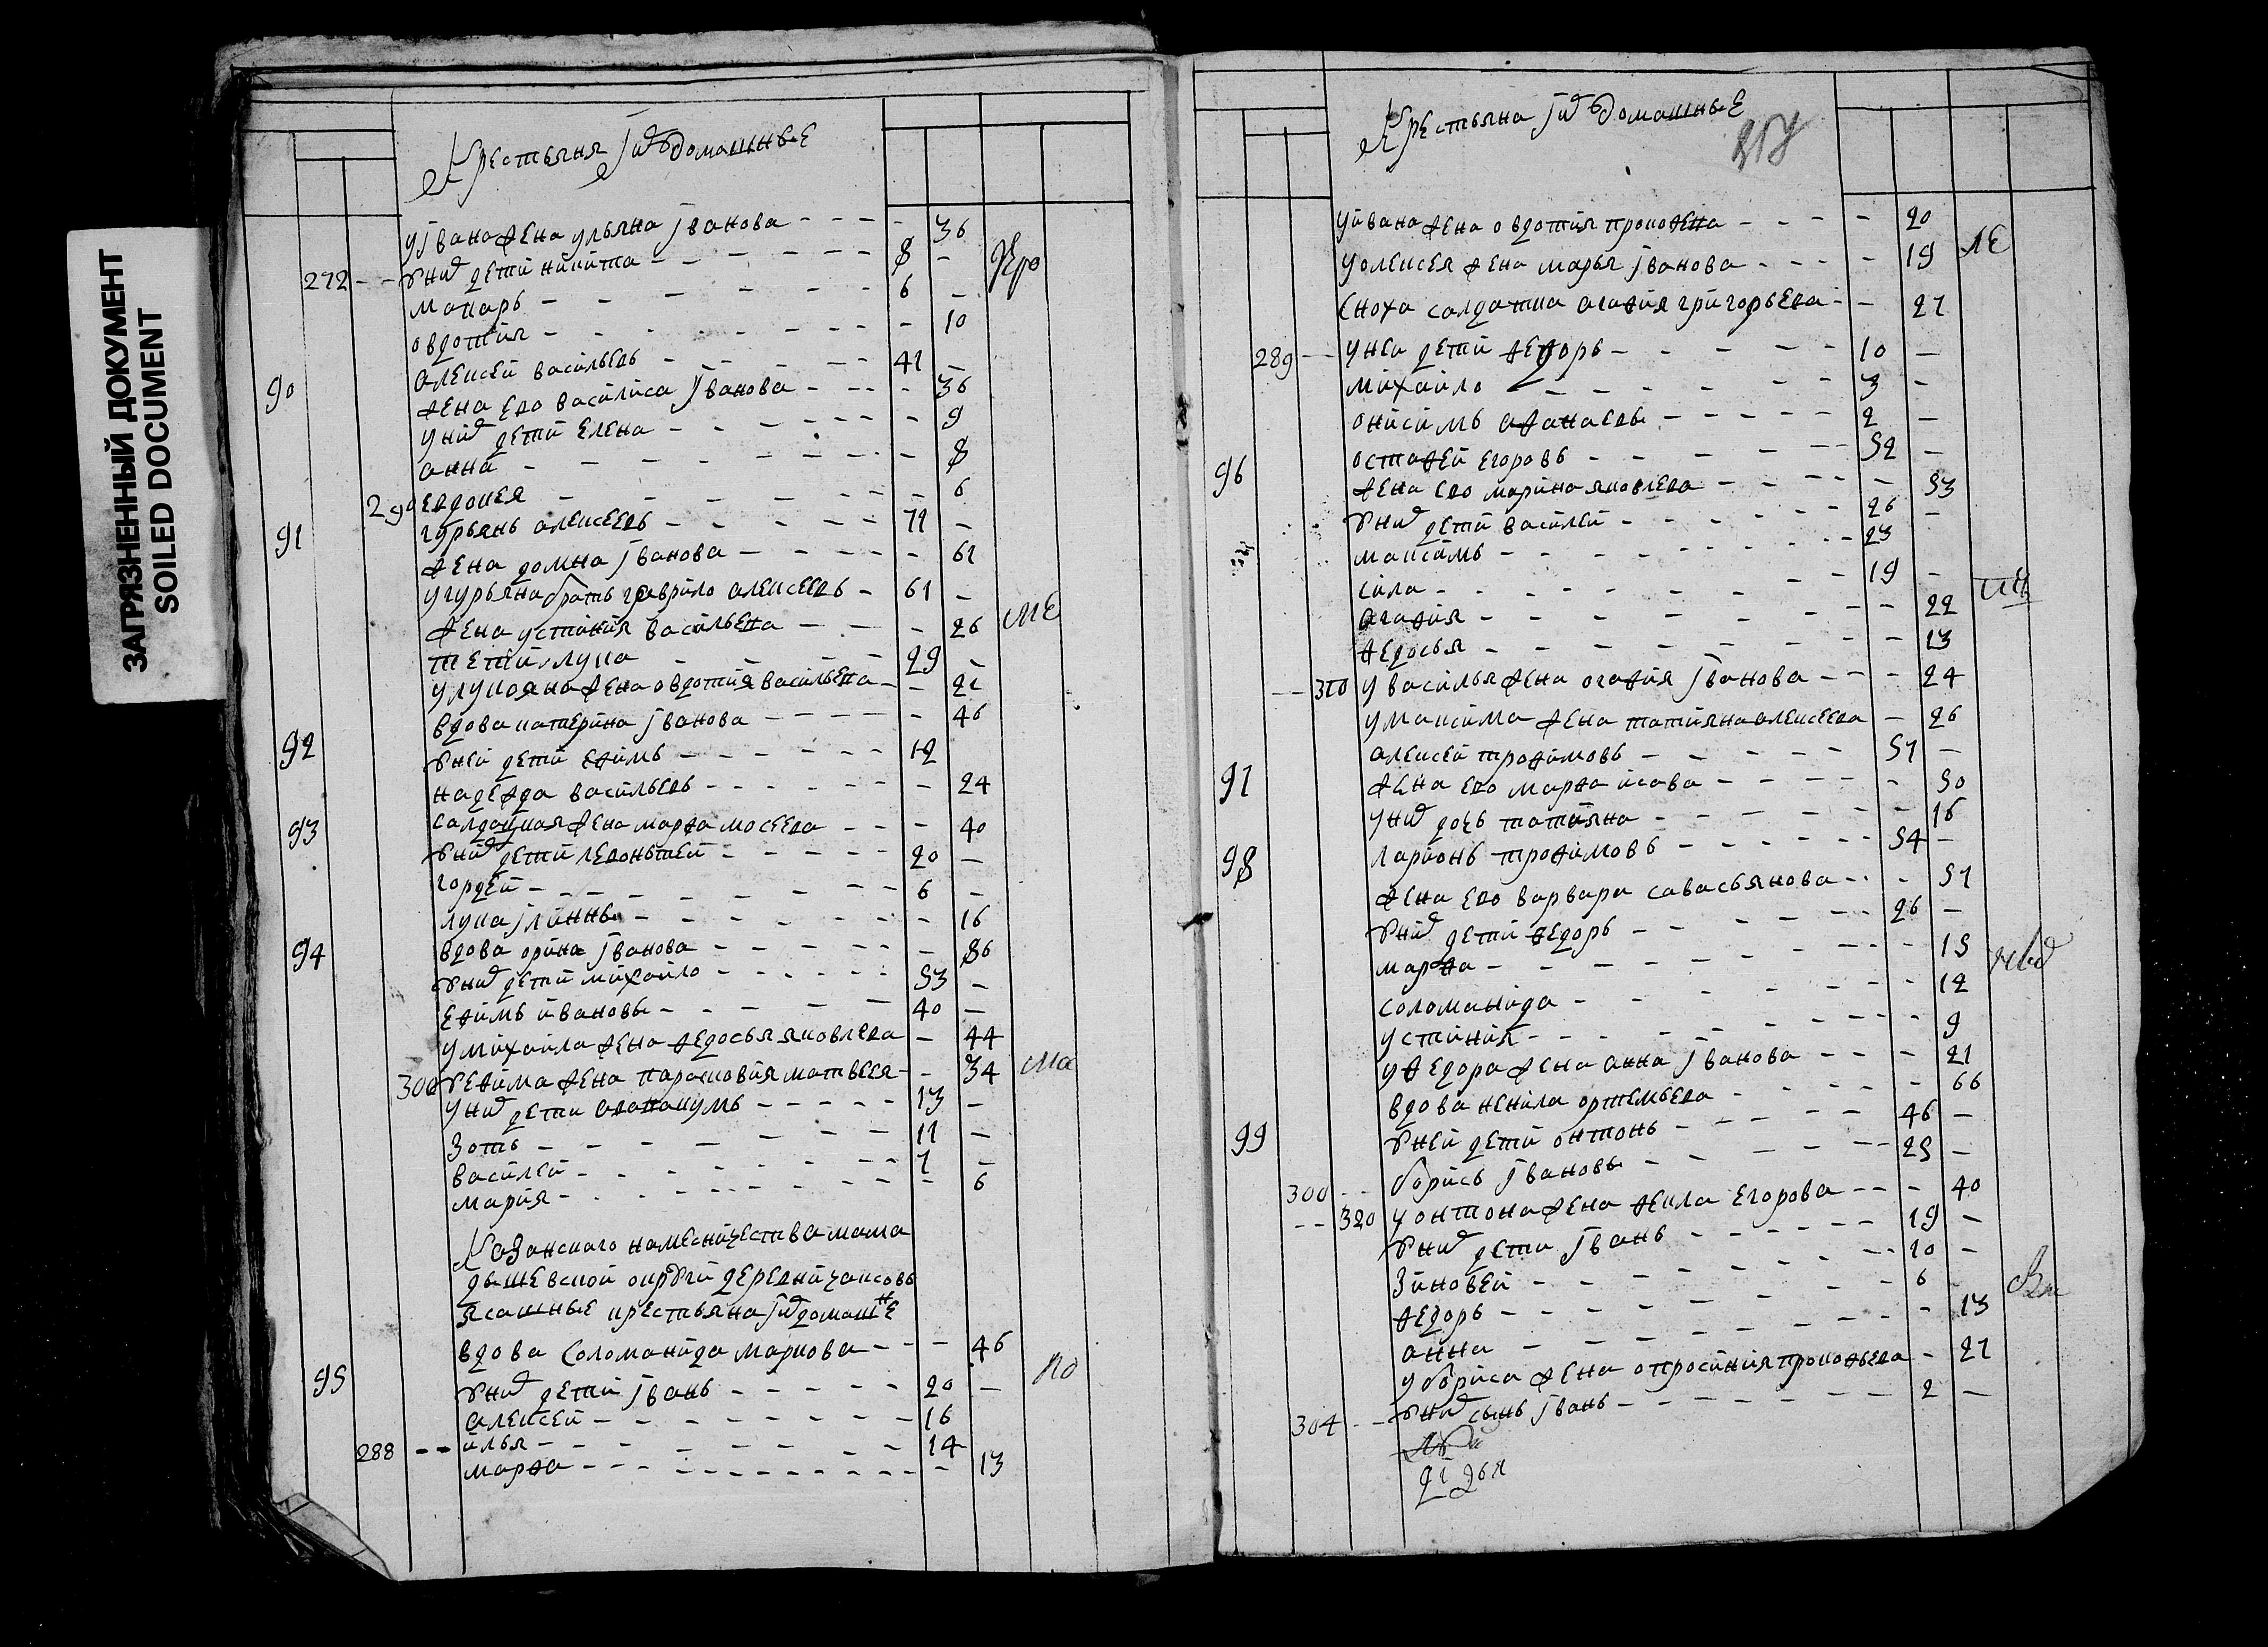 ЗАГРЯЗНЕННЫЙ ДОКУМЕНТ
SOILED DOCUMENT
Крестьяня и ихъ домашные
у Iвана жена ульяна Iванова 36
272 у них дети никита 8
макаръ 6
овдотия 10
90 алексей васильевъ 41
жена ево василиса Iванова 36
у них дети елена 9
анна 8
290 евдокея 6
91 гурьянъ алексеевъ 71
жена домна Iванова 61
у гурьяна братъ гаврило алексеевъ 61
жена устиния васильева 26
лука 29
у лукояна жена овдотия васильева 21
92 вдова катерина Iванова 46
у ней дети ефимъ 12
надежда 24
93 салдацкая жена марфа мосеева 40
у них дети 20
гордей 6
16
94 вдова орина Iванова 86
у них дети михайло 53
ефимъ ивановы 40
у михаила жена федосья яковлева 44
300 у ефима жена парасковия матвеея 34
у них дети 13
зотъ 11
василей 7
мария 6
Казанского наместничества мама
дышевской округи деревни
ясашные крестьяна и их домашне
95 вдова соломанида маркова 46
у них дети Iванъ 20
алексей 16
288 илья 14
марфа 13
Крестьяна и ихъ домашные
у ивана жена овдотия прокофева 20
у олексея жена марья Iванова 19
сноха салдатка агафия григорьева 27
289 у неи дети федоръ 10
михайло 3
онисимъ афанасевы 2
96 остафей егоровъ 52
жена ево марина яковлева 53
у них дети василей 26
максимъ 23
сила 19
агафия 22
федосья 13
310 у василья жена огафия Iванова 24
у максима жена татияна алексеева 26
97 алексей трофимовъ 57
жена ево марфа исава 50
у них дочь татияна 16
98 ларионъ трофимовъ 54
жена ево варвара савасьянова 57
у них дети федоръ 26
марфа 15
соломанида 12
устиния 9
у федора жена анна Iванова 21
99 вдова ненила ортемьева 66
у ней дети онтонъ 46
300 борисъ Iвановы 25
320 у онтона жена фекла егорова 40
у них дети Iванъ 19
зиновей 10
федоръ 6
анна 13
у бориса жена опросиния прокофьева 27
304 у них сынъ Iванъ 2